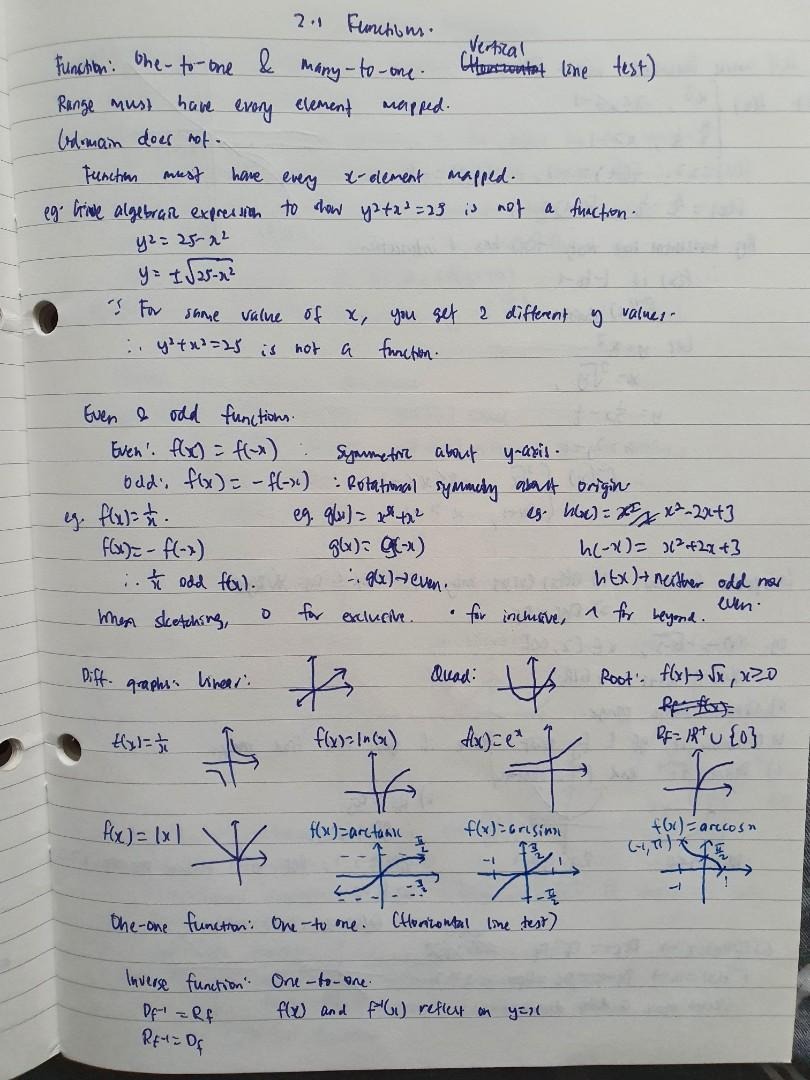 2.1 Functions.
Function: One-to-one & many-to-one. (Vertical line test)
Range must have every element mapped.
Codomain does not.
Function must have every x-element mapped.
eg. Give algebraic expression to show y²+x²=25 is not a function.
y² = 25-x²
y = ±√25-x²
∵ For same value of x, you get 2 different y values.
∴ y²+x²=25 is not a function.
Even & odd functions.
Even: f(x) = f(-x) : Symmetric about y-axis.
Odd: f(x) = -f(-x) : Rotational symmetry about origin
eg. f(x)= 1/x. eg. g(x) = x⁴+x² eg. h(x) = x²-2x+3
f(x)= - f(-x) g(x) = g(-x) h(-x) = x²+2x+3
∴ 1/x odd f(x). ∴ g(x)→even. h(x)→neither odd nor even.
When sketching, o for exclusive. • for inclusive, ^ for beyond.
Diff. graphs: Linear: Quad: Root: f(x)→√x, x≥0
f(x)=1/x f(x)=ln(x) f(x)=eˣ Rf=ℝ⁺∪{0}
f(x)=|x| f(x)=arctanx f(x)=arcsinx f(x)=arccosx
π/2 -π/2
-1 π/2 1 -π/2
(-1,π) π/2 -1 1
One-one function: One-to one. (Horizontal line test)
Inverse function: One-to-one.
Df⁻¹ = Rf f(x) and f⁻¹(x) reflect on y=x
Rf⁻¹=Df